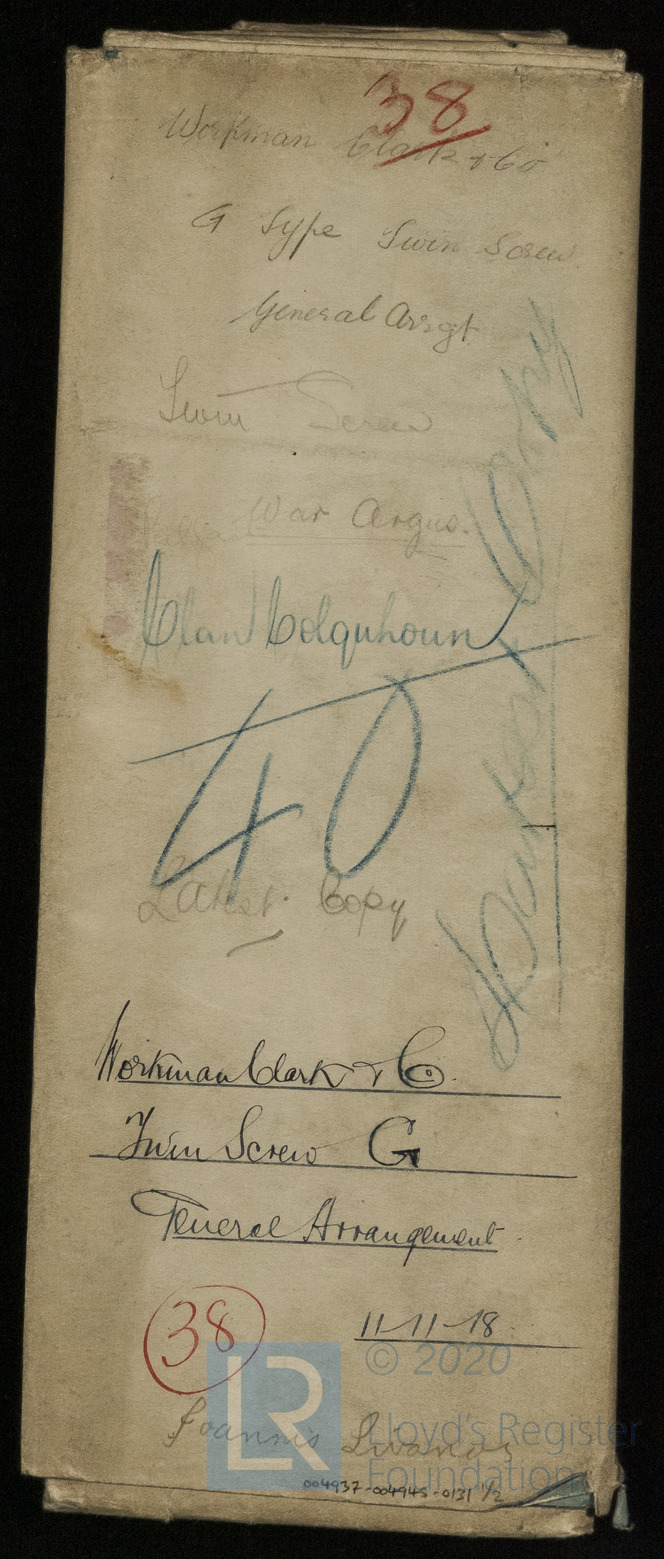 38
Workman Clark & Co
G Type Twin Screw
General Arrgt
Twin Screw
War Argus.
Clan Colquhoun
40
Latest Copy
Workman Clark & Co.
Twin Screw G
General Arrangement
38
11-11-18
© 2020
LR
Lloyd's Register
Foundation
Joannis
004937-004945-0131 1/2